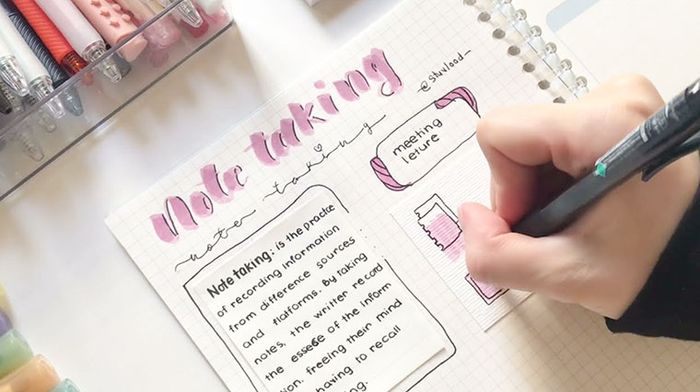 Note taking
note taking
@stuvlood_
meeting
leture
Note taking: is the practie
of recording information
from difference sources
and flatforms. By taking
notes, the writter record
the essege of the inform
ion, freeing their mind
having to recall
ing.